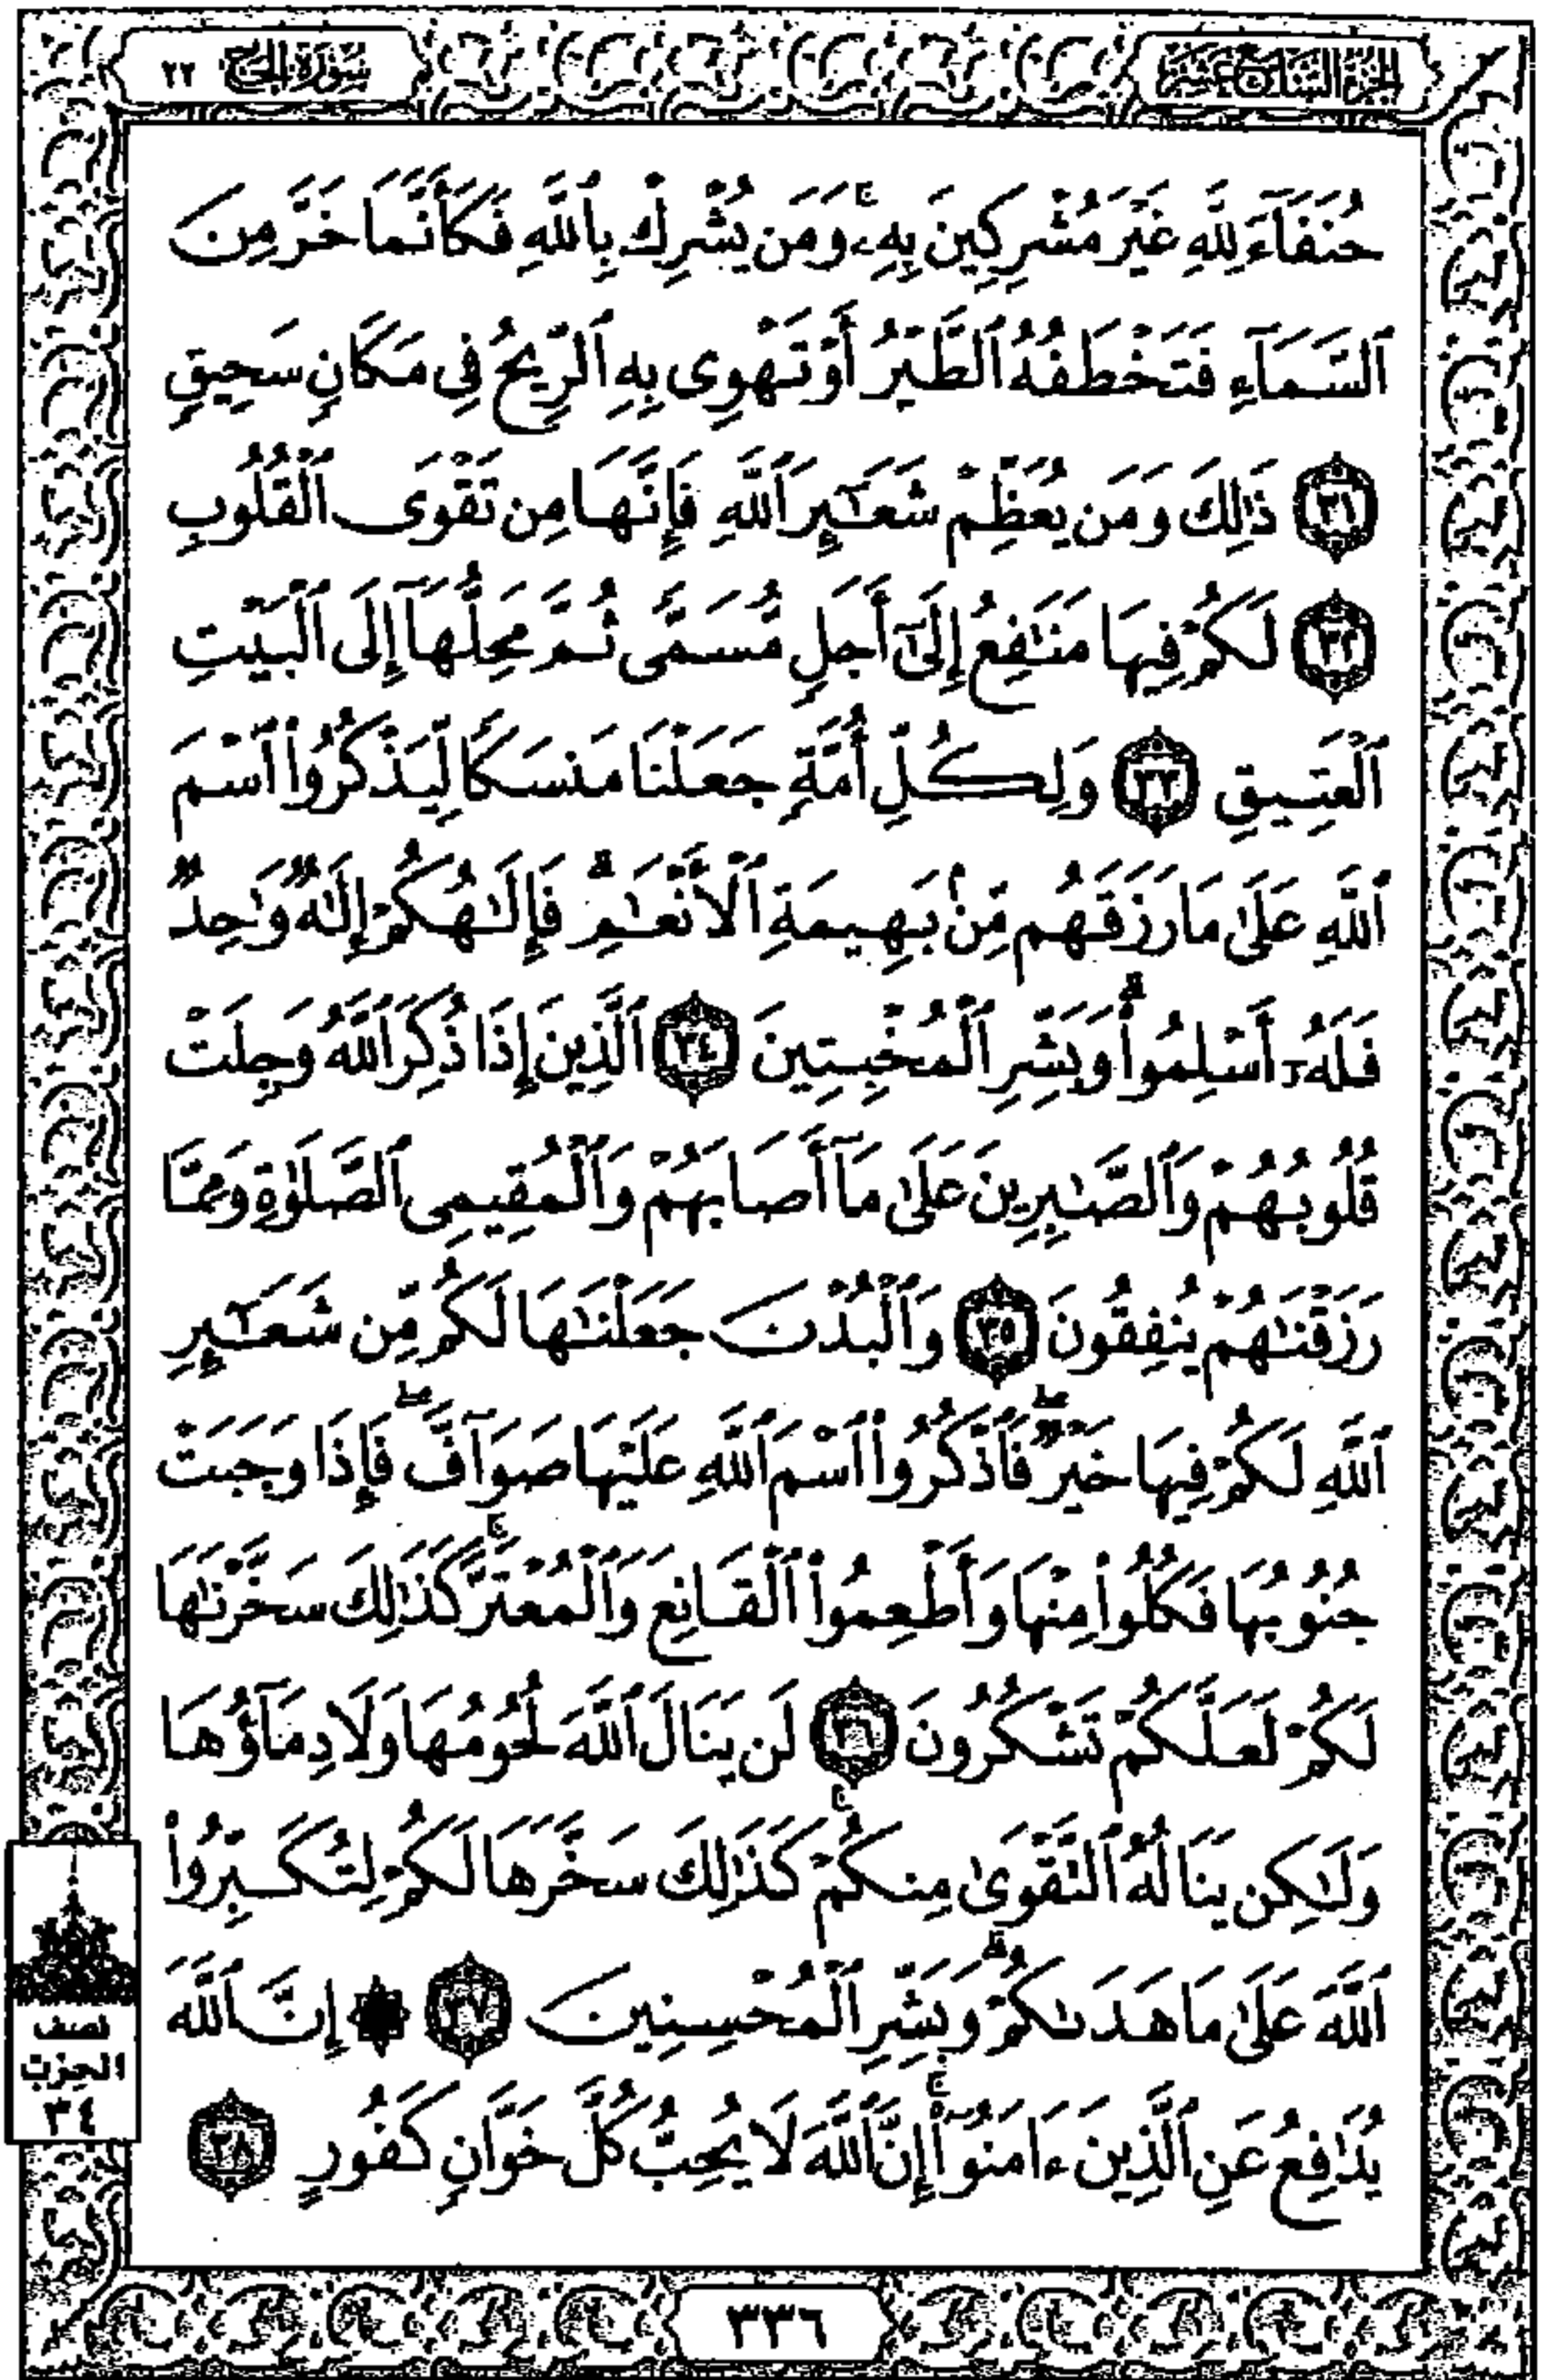 الجزء السابع عشر سورة الحج ٢٢
حُنَفَآءَ لِلَّهِ غَيْرَ مُشْرِكِينَ بِهِۦۚ وَمَن يُشْرِكْ بِٱللَّهِ فَكَأَنَّمَا خَرَّ مِنَ
ٱلسَّمَآءِ فَتَخْطَفُهُ ٱلطَّيْرُ أَوْ تَهْوِى بِهِ ٱلرِّيحُ فِى مَكَانٍ سَحِيقٍ
٣١ ذَٰلِكَ وَمَن يُعَظِّمْ شَعَٰٓئِرَ ٱللَّهِ فَإِنَّهَا مِن تَقْوَى ٱلْقُلُوبِ
٣٢ لَكُمْ فِيهَا مَنَٰفِعُ إِلَىٰٓ أَجَلٍ مُّسَمًّى ثُمَّ مَحِلُّهَآ إِلَى ٱلْبَيْتِ
ٱلْعَتِيقِ ٣٣ وَلِكُلِّ أُمَّةٍ جَعَلْنَا مَنسَكًا لِّيَذْكُرُوا۟ ٱسْمَ
ٱللَّهِ عَلَىٰ مَا رَزَقَهُم مِّنۢ بَهِيمَةِ ٱلْأَنْعَٰمِۗ فَإِلَٰهُكُمْ إِلَٰهٌ وَٰحِدٌ
فَلَهُۥٓ أَسْلِمُوا۟ۗ وَبَشِّرِ ٱلْمُخْبِتِينَ ٣٤ ٱلَّذِينَ إِذَا ذُكِرَ ٱللَّهُ وَجِلَتْ
قُلُوبُهُمْ وَٱلصَّٰبِرِينَ عَلَىٰ مَآ أَصَابَهُمْ وَٱلْمُقِيمِى ٱلصَّلَوٰةِ وَمِمَّا
رَزَقْنَٰهُمْ يُنفِقُونَ ٣٥ وَٱلْبُدْنَ جَعَلْنَٰهَا لَكُم مِّن شَعَٰٓئِرِ
ٱللَّهِ لَكُمْ فِيهَا خَيْرٌۖ فَٱذْكُرُوا۟ ٱسْمَ ٱللَّهِ عَلَيْهَا صَوَآفَّۖ فَإِذَا وَجَبَتْ
جُنُوبُهَا فَكُلُوا۟ مِنْهَا وَأَطْعِمُوا۟ ٱلْقَانِعَ وَٱلْمُعْتَرَّۚ كَذَٰلِكَ سَخَّرْنَٰهَا
لَكُمْ لَعَلَّكُمْ تَشْكُرُونَ ٣٦ لَن يَنَالَ ٱللَّهَ لُحُومُهَا وَلَا دِمَآؤُهَا
وَلَٰكِن يَنَالُهُ ٱلتَّقْوَىٰ مِنكُمْۚ كَذَٰلِكَ سَخَّرَهَا لَكُمْ لِتُكَبِّرُوا۟
ٱللَّهَ عَلَىٰ مَا هَدَىٰكُمْۗ وَبَشِّرِ ٱلْمُحْسِنِينَ ٣٧ ۞ إِنَّ ٱللَّهَ
يُدَٰفِعُ عَنِ ٱلَّذِينَ ءَامَنُوٓا۟ۚ إِنَّ ٱللَّهَ لَا يُحِبُّ كُلَّ خَوَّانٍ كَفُورٍ ٣٨
نصف
الحزب
٣٤
٣٣٦